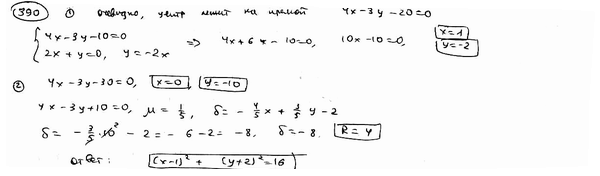 390 ① очевидно, центр лежит на прямой 4x-3y-20=0
{ 4x-3y-10=0
2x+y=0, y=-2x => 4x+6x-10=0, 10x-10=0, x=1
y=-2
② 4x-3y-30=0, x=0, y=-10
4x-3y+10=0, μ=1/5, δ=-4/5 x + 3/5 y - 2
δ=-3/5·10² - 2 = -6-2 = -8, δ=-8. R=4
ответ: (x-1)² + (y+2)² = 16